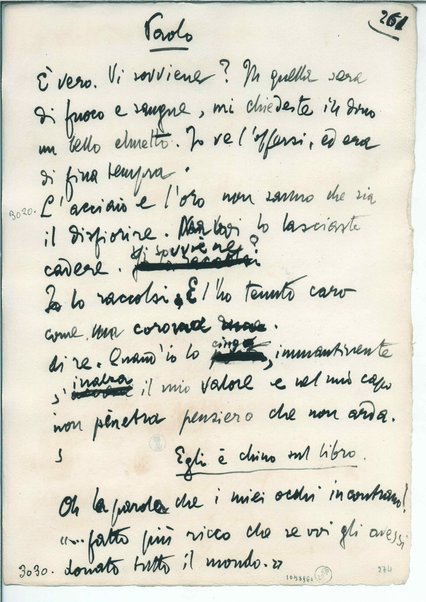 261
Paolo
È vero. Vi sovviene? In quella sera
di fuoco e sangue, mi chiedeste in dono
un bello elmetto. Io ve l'offersi, ed era
di fina tempra.
3020. L'acciaio e l'oro non sanno che sia
il disfiorire. Malatesti lo lasciaste
cadere. Vi sovviene?
Io lo raccolsi, E l'ho tenuto caro
come una corona
di re. Quand'io lo cingo, immantinente
s'inalza il mio valore e nel mio capo
non penetra pensiero che non arda.
s
Egli è chino sul libro.
Oh la parola che i miei occhi incontrano!
"....fatto più ricco che se voi gli avessi
3030. donato tutto il mondo."
274